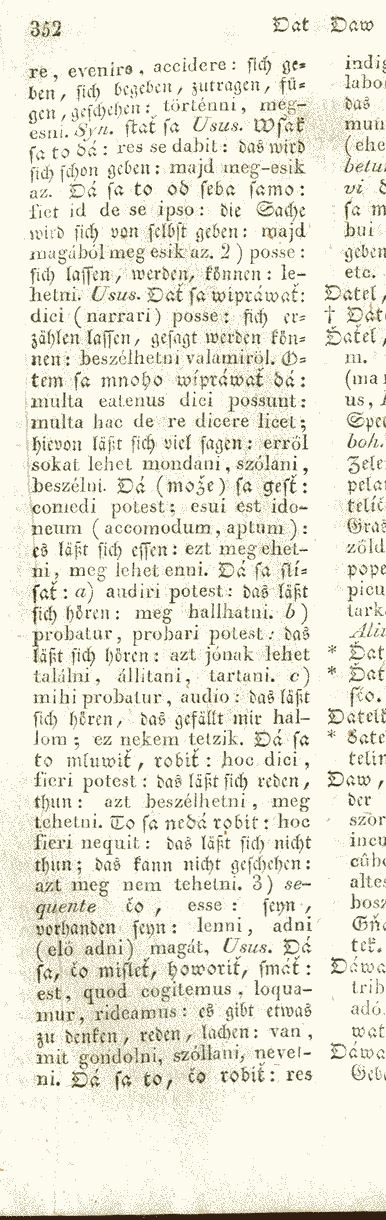 352
Dat Daw
re, evenire, accidere: sich ge=
ben, sich begeben, zutragen, fü=
gen, geschehen: történni, meg-
esni. Syn. stať sa Usus. Wsak
sa to dá: res se dabit: das wird
sich schon geben: majd meg-esik
az. Dá sa to od seba samo:
fiet id de se ipso: die Sache
wird sich von selbst geben: majd
magából meg esik az. 2) posse:
sich lassen, werden, können: le-
hetni. Usus. Dať sa wipráwať:
dici (narrari) posse: sich er=
zählen lassen, gesagt werden kön=
nen: beszélhetni valamiröl. O=
tem sa mnoho wipráwať dá:
multa eatenus dici possunt:
multa hac de re dicere licet;
hievon läßt sich viel sagen: erröl
sokat lehet mondani, szólani,
beszélni. Dá (može) sa gesť:
comedi potest; esui est ido-
neum (accomodum, aptum):
es läßt sich essen: ezt meg ehet-
ni, meg lehet enni. Dá sa sli=
sať: a) audiri potest: das läßt
sich hören: meg hallhatni. b)
probatur, probari potest: das
läßt sich hören: azt jónak lehet
találni, állitani, tartani. c)
mihi probatur, audio: das läßt
sich hören, das gefällt mir hal-
lom; ez nekem tetzik. Dá sa
to mluwiť, robiť: hoc dici,
fieri potest: das läßt sich reden,
thun: azt beszélhetni, meg
tehetni. To sa nedá robiť: hoc
fieri nequit: das läßt sich nicht
thun; das kann nicht geschehen:
azt meg nem tehetni. 3) se-
quente čo, esse: seyn,
vorhanden seyn: lenni, adni
(elö adni) magát, Usus. Dá
sa, čo misleť, howoriť, smáť:
est, quod cogitemus, loqua-
mur, rideamus: es gibt etwas
zu denken, reden, lachen: van,
mit gondolni, szóllani, nevet-
ni. Dá sa to, čo robiť: res
indig
labor
das
mun
(ehe
betu
vi
sa m
hui
geben
etc.
Datel,
† Dát
Ďatel,
m.
(ma
us,
Spec
boh.
Zele
pela
telíč
Gras
zöld
pope
picu
tark
Alit
* Dat
* Dat
sčo.
Datelí
* Sate
telin
Daw,
der
ször
incu
cúbo
altes
bosz
Gňe
tek.
Dáwa
trib
adó.
wat
Dáwa
Gebe